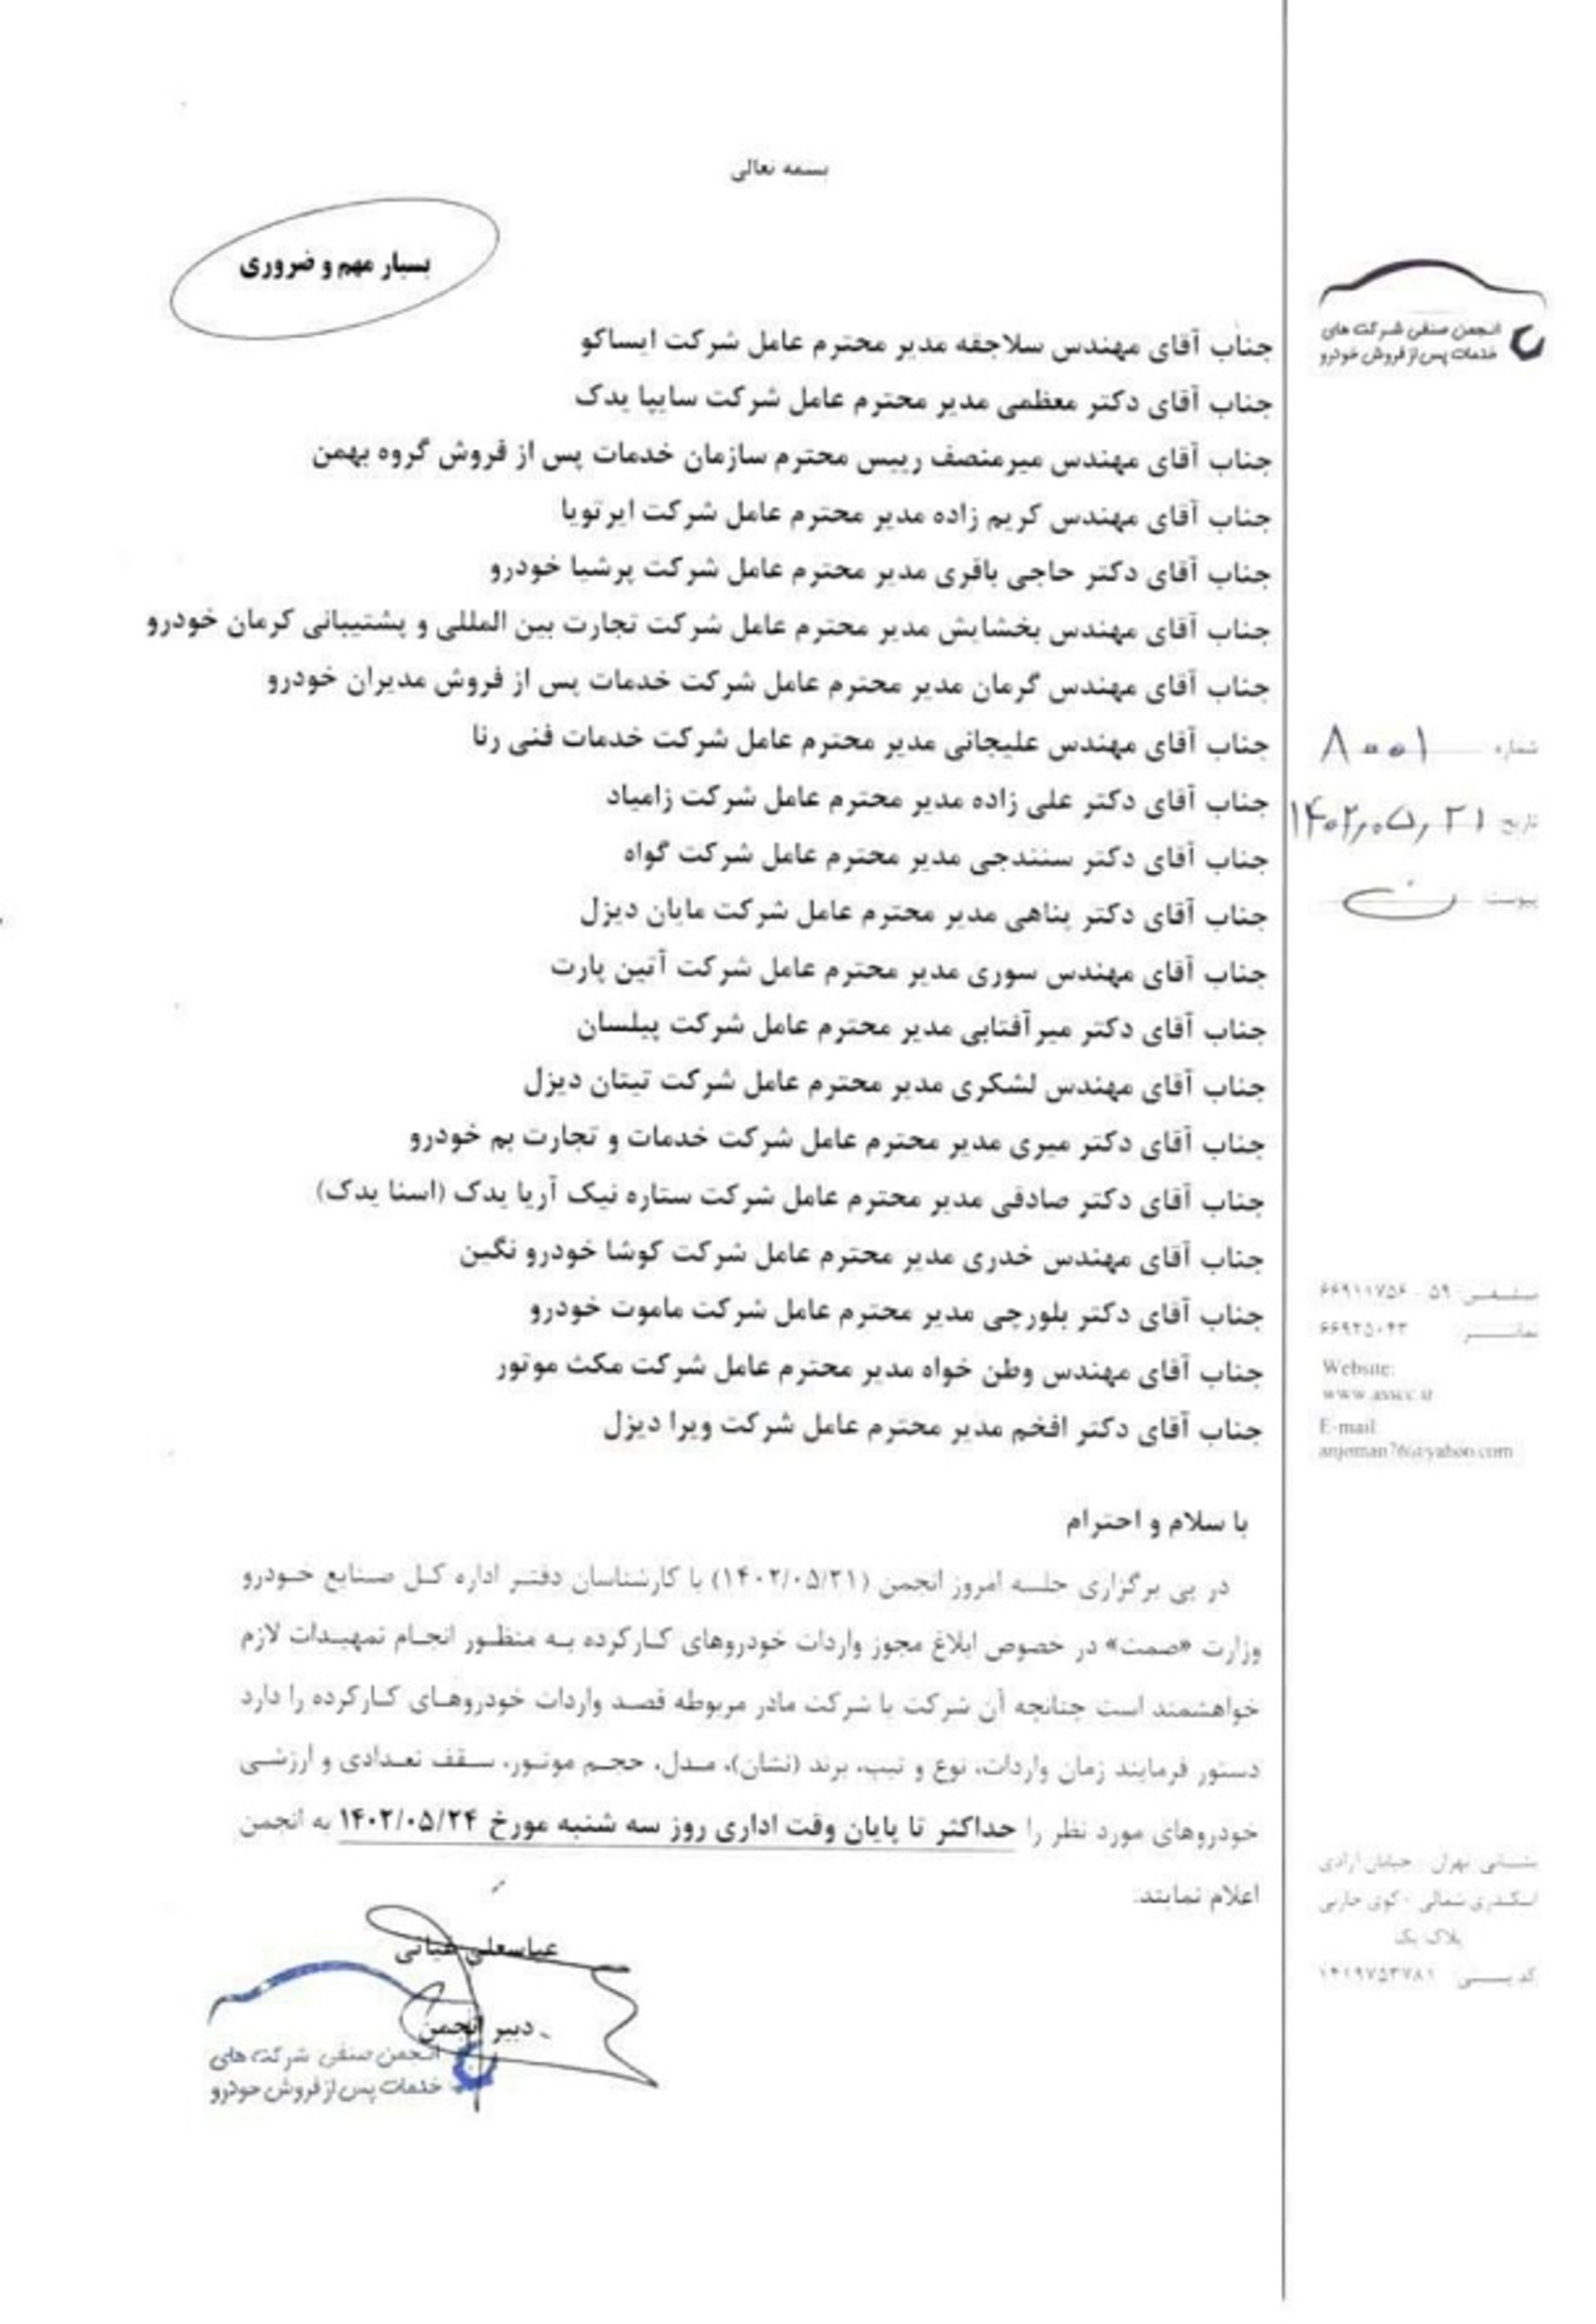 بسمه تعالی
بسیار مهم و ضروری
انجمن صنفی شرکت های
خدمات پس از فروش خودرو
جناب آقای مهندس سلاجقه مدیر محترم عامل شرکت ایساکو
جناب آقای دکتر معظمی مدیر محترم عامل شرکت سایپا یدک
جناب آقای مهندس میرمنصف رییس محترم سازمان خدمات پس از فروش گروه بهمن
جناب آقای مهندس کریم زاده مدیر محترم عامل شرکت ایرتویا
جناب آقای دکتر حاجی باقری مدیر محترم عامل شرکت پرشیا خودرو
جناب آقای مهندس بخشایش مدیر محترم عامل شرکت تجارت بین المللی و پشتیبانی کرمان خودرو
جناب آقای مهندس گرمان مدیر محترم عامل شرکت خدمات پس از فروش مدیران خودرو
جناب آقای مهندس علیجانی مدیر محترم عامل شرکت خدمات فنی رنا
جناب آقای دکتر علی زاده مدیر محترم عامل شرکت زامیاد
جناب آقای دکتر سنندجی مدیر محترم عامل شرکت گواه
جناب آقای دکتر پناهی مدیر محترم عامل شرکت مایان دیزل
جناب آقای مهندس سوری مدیر محترم عامل شرکت آتین پارت
جناب آقای دکتر میرآفتابی مدیر محترم عامل شرکت پیلسان
جناب آقای مهندس لشکری مدیر محترم عامل شرکت تیتان دیزل
جناب آقای دکتر میری مدیر محترم عامل شرکت خدمات و تجارت بم خودرو
جناب آقای دکتر صادقی مدیر محترم عامل شرکت ستاره نیک آریا یدک (اسنا یدک)
جناب آقای مهندس خدری مدیر محترم عامل شرکت کوشا خودرو نگین
جناب آقای دکتر بلورچی مدیر محترم عامل شرکت ماموت خودرو
جناب آقای مهندس وطن خواه مدیر محترم عامل شرکت مکث موتور
جناب آقای دکتر افخم مدیر محترم عامل شرکت ویرا دیزل
با سلام و احترام
در پی برگزاری جلسه امروز انجمن (۱۴۰۲/۰۵/۲۱) با کارشناسان دفتر اداره کل صنایع خودرو
وزارت «صمت» در خصوص ابلاغ مجوز واردات خودروهای کارکرده به منظور انجام تمهیدات لازم
خواهشمند است چنانچه آن شرکت یا شرکت مادر مربوطه قصد واردات خودروهای کارکرده را دارد
دستور فرمایند زمان واردات، نوع و تیپ، برند (نشان)، مدل، حجم موتور، سقف تعدادی و ارزشی
خودروهای مورد نظر را حداکثر تا پایان وقت اداری روز سه شنبه مورخ ۱۴۰۲/۰۵/۲۴ به انجمن
اعلام نمایند.
عباسعلی غیاثی
دبیر انجمن
انجمن صنفی شرکت های
خدمات پس از فروش خودرو
شماره ۸۰۰۱
تاریخ ۱۴۰۲,۰۵,۲۱
پیوست ن
تلفن: ۵۹ - ۶۶۹۱۱۷۵۶
نمابر ۶۶۹۲۵۰۴۳
Website:
www.asscc.ir
E-mail:
anjoman76@yahoo.com
نشانی: تهران - خیابان آزادی
اسکندری شمالی - کوی
پلاک یک
کد پستی: ۱۴۱۹۷۵۳۷۸۱